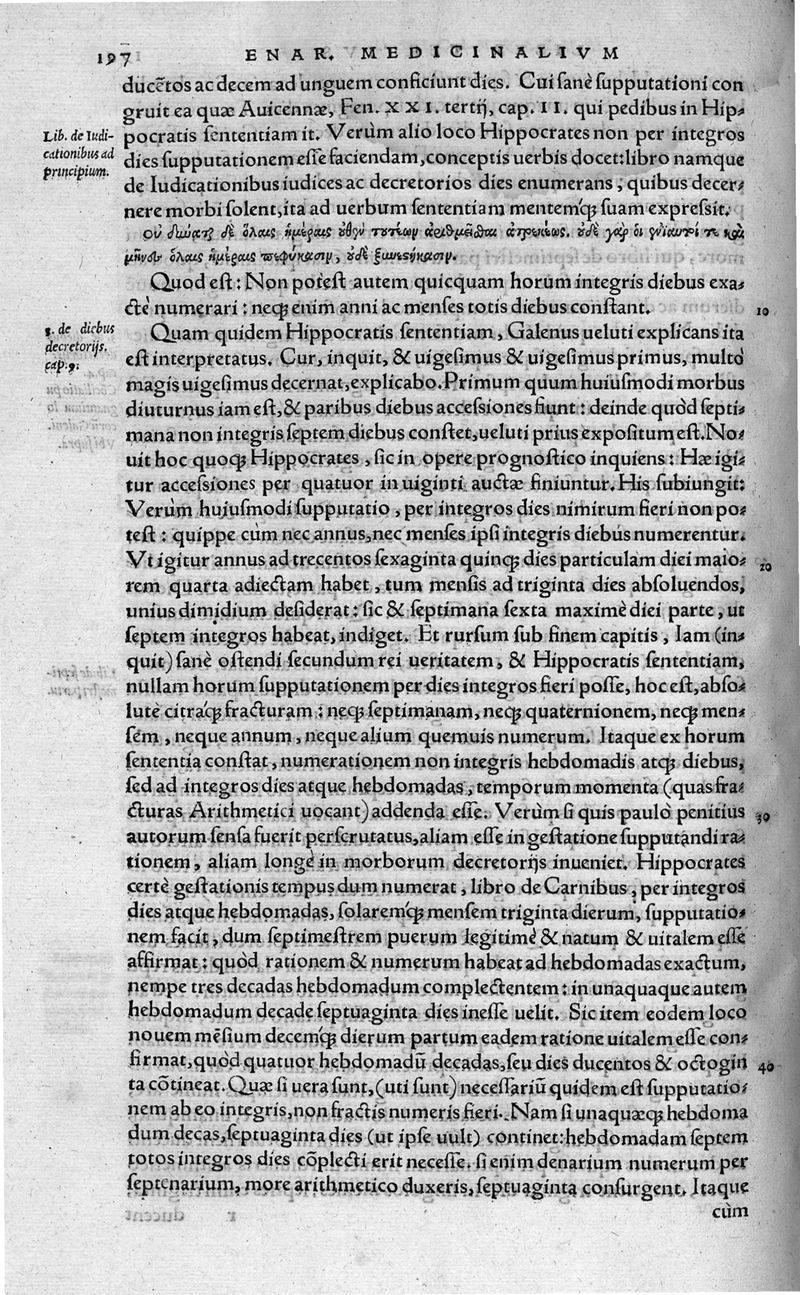 197 ENAR. MEDICINALIVM
ducētos ac decem ad unguem conficiunt dies. Cui sanè supputationi con
gruit ea quæ Auicennæ, Fen. XXI. tertij, cap. II. qui pedibus in Hip-
Lib. de Iudi-
cationibus ad
principium.
pocratis sententiam it. Verùm alio loco Hippocrates non per integros
dies supputationem esse faciendam, conceptis uerbis docet: libro namque
de Iudicationibus iudices ac decretorios dies enumerans, quibus decer-
nere morbi solent, ita ad uerbum sententiam mentemq́; suam expressit.
οὐ δύναται δὲ ὅλαις ἡμέραις οὐθὲν τουτέων ἀριθμεῖσθαι ἀτρεκέως. οὐδὲ γὰρ οἱ ἐνιαυτοί τε καὶ
μῆνες ὅλαις ἡμέραις πεφύκασιν,
Quod est: Non potest autem quicquam horum integris diebus exa-
ctè numerari: neq; enim anni ac menses totis diebus constant. 10
3. de diebus
decretorijs.
cap. 9.
Quam quidem Hippocratis sententiam, Galenus ueluti explicans ita
est interpretatus. Cur, inquit, & uigesimus & uigesimus primus, multò
magis uigesimus decernat, explicabo. Primum quum huiusmodi morbus
diuturnus iam est, & paribus diebus accessiones fiunt: deinde quòd septi-
mana non integris septem diebus constet, ueluti prius expositum est. No-
uit hoc quoq; Hippocrates, sic in opere prognostico inquiens: Hæ igi-
tur accessiones per quatuor in uiginti auctæ finiuntur. His subiungit:
Verùm huiusmodi supputatio, per integros dies nimirum fieri non po-
test: quippe cùm nec annus, nec menses ipsi integris diebus numerentur.
Vt igitur annus ad trecentos sexaginta quinq; dies particulam diei maio- 20
rem quarta adiectam habet, tum mensis ad triginta dies absoluendos,
unius dimidium desiderat: sic & septimana sexta maximè diei parte, ut
septem integros habeat, indiget. Et rursum sub finem capitis, Iam (in-
quit) sanè ostendi secundum rei ueritatem, & Hippocratis sententiam,
nullam horum supputationem per dies integros fieri posse, hoc est, abso-
lutè citraq́; fracturam: neq; septimanam, neq; quaternionem, neq; men-
sem, neque annum, neque alium quemuis numerum. Itaque ex horum
sententia constat, numerationem non integris hebdomadis atq; diebus,
sed ad integros dies atque hebdomadas, temporum momenta (quas fra-
cturas Arithmetici uocant) addenda esse. Verùm si quis paulò penitius 30
autorum sensa fuerit perscrutatus, aliam esse in gestatione supputandi ra-
tionem, aliam longè in morborum decretorijs inueniet. Hippocrates
certè gestationis tempus dum numerat, libro de Carnibus, per integros
dies atque hebdomadas, solaremq́; mensem triginta dierum, supputatio-
nem facit, dum septimestrem puerum legitimè & natum & uitalem esse
affirmat: quòd rationem & numerum habeat ad hebdomadas exactum,
nempe tres decadas hebdomadum complectentem: in unaquaque autem
hebdomadum decade septuaginta dies inesse uelit. Sic item eodem loco
nouem mēsium decemq́; dierum partum eadem ratione uitalem esse con-
firmat, quòd quatuor hebdomadū decadas, seu dies ducentos & octogin 40
ta cōtineat. Quæ si uera sunt, (uti sunt) necessariū quidem est supputatio-
nem ab eo integris, non fractis numeris fieri. Nam si unaquæq; hebdoma
dum decas, septuaginta dies (ut ipse uult) continet: hebdomadam septem
totos integros dies cōplecti erit necesse. si enim denarium numerum per
septenarium, more arithmetico duxeris, septuaginta consurgent. Itaque
cùm